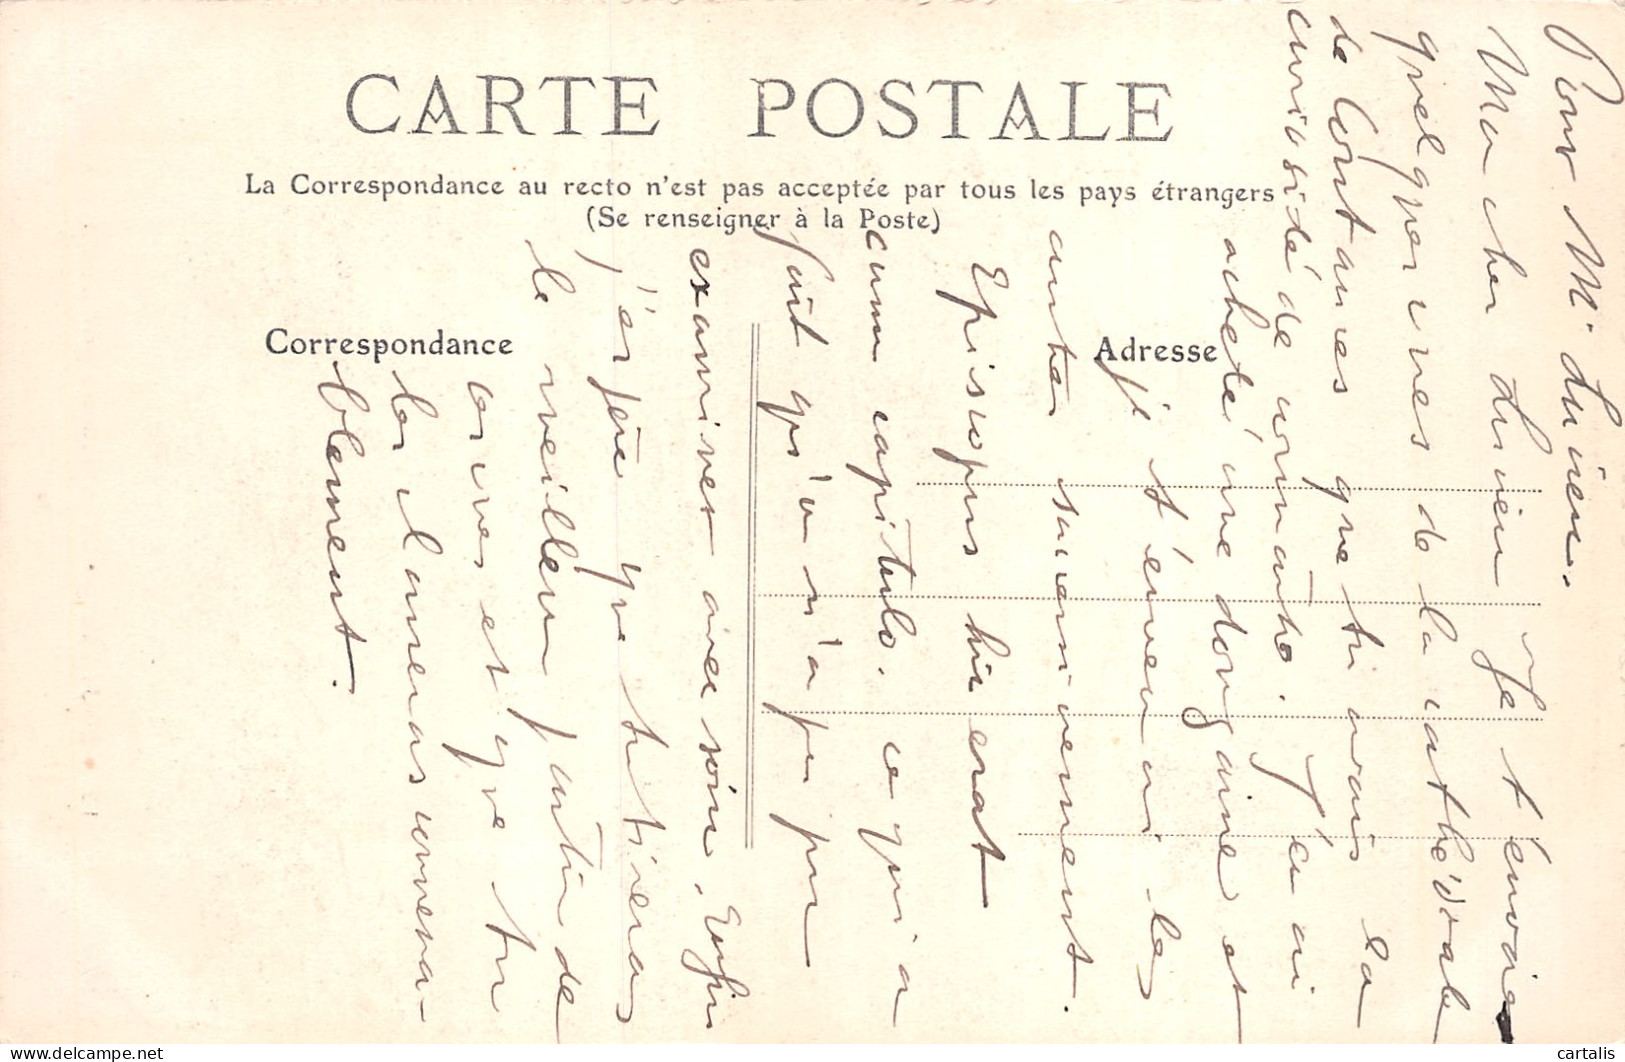 CARTE POSTALE
La Correspondance au recto n'est pas acceptée par tous les pays étrangers
(Se renseigner à la Poste)
Correspondance
Adresse
Pour Mr Lucien.
Mon cher Lucien Je t'envoie
quelques unes de la cathédrale
de Coutances que tu avais la
curiosité de connaître. J'en ai
acheté une dougaine et
je t'enverrai les
autres successivement.
Episcopus hic erat
cum capitulo, ce qui a
fait qu'on n'a pu
examiner avec soin. Enfin
j'espère que tu tireras
le meilleur parti de
ces et que tu
les classeras convena-
blement.
cartalis